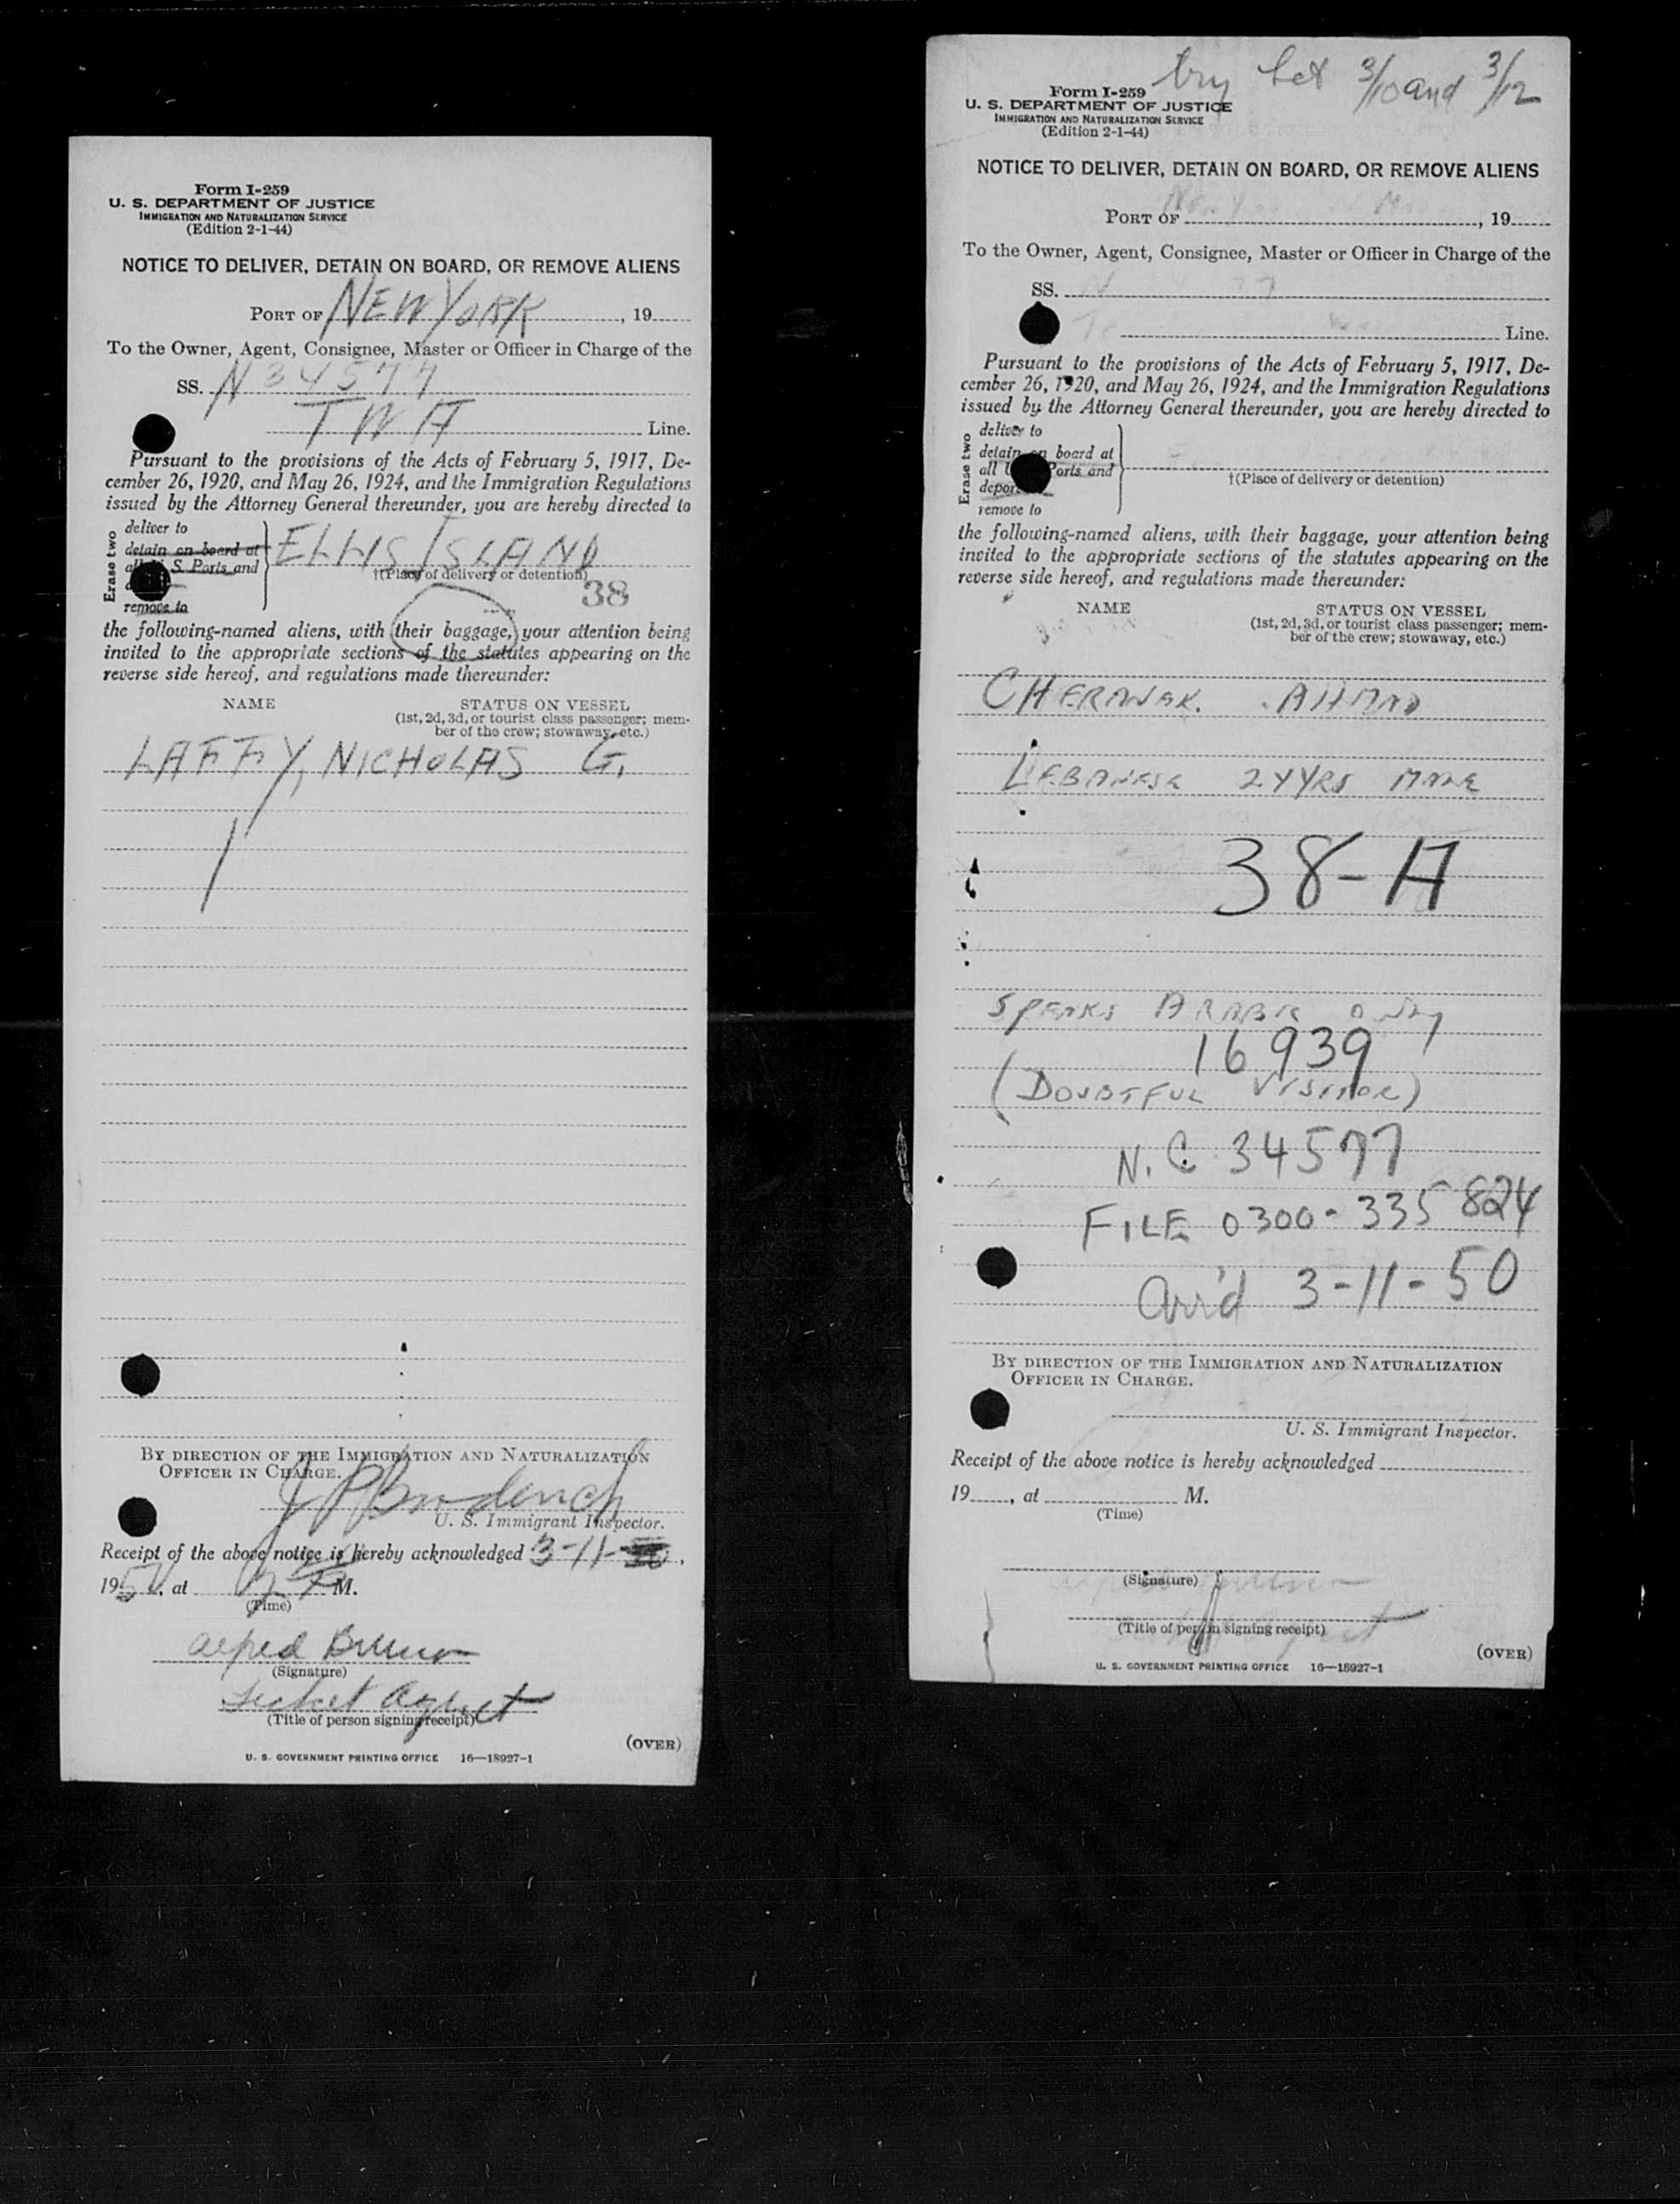 Form I-259
U. S. DEPARTMENT OF JUSTICE
IMMIGRATION AND NATURALIZATION SERVICE
(Edition 2-1-44)
NOTICE TO DELIVER, DETAIN ON BOARD, OR REMOVE ALIENS
PORT OF NEW YORK, 19
To the Owner, Agent, Consignee, Master or Officer in Charge of the
SS. N 34577
TWA Line.
Pursuant to the provisions of the Acts of February 5, 1917, De-
cember 26, 1920, and May 26, 1924, and the Immigration Regulations
issued by the Attorney General thereunder, you are hereby directed to
Erase two
deliver to
detain on board at
S. Ports and
remove to
ELLIS ISLAND
†(Place of delivery or detention)
38
the following-named aliens, with their baggage, your attention being
invited to the appropriate sections of the statutes appearing on the
reverse side hereof, and regulations made thereunder:
NAME STATUS ON VESSEL
(1st, 2d, 3d, or tourist class passenger; mem-
ber of the crew; stowaway, etc.)
LAFFY, NICHOLAS G.
BY DIRECTION OF THE IMMIGRATION AND NATURALIZATION
OFFICER IN CHARGE.
U. S. Immigrant Inspector.
Receipt of the above notice is hereby acknowledged 3-11-
1950, at M.
(Time)
Alfred Bruno
(Signature)
Ticket Agent
(Title of person signing receipt)
(OVER)
U. S. GOVERNMENT PRINTING OFFICE 16—18927-1
try Let 3/10 and 3/12
Form I-259
U. S. DEPARTMENT OF JUSTICE
IMMIGRATION AND NATURALIZATION SERVICE
(Edition 2-1-44)
NOTICE TO DELIVER, DETAIN ON BOARD, OR REMOVE ALIENS
PORT OF , 19
To the Owner, Agent, Consignee, Master or Officer in Charge of the
SS.
Line.
Pursuant to the provisions of the Acts of February 5, 1917, De-
cember 26, 1920, and May 26, 1924, and the Immigration Regulations
issued by the Attorney General thereunder, you are hereby directed to
Erase two
deliver to
detain on board at
all Ports and
depor
remove to
†(Place of delivery or detention)
the following-named aliens, with their baggage, your attention being
invited to the appropriate sections of the statutes appearing on the
reverse side hereof, and regulations made thereunder:
NAME STATUS ON VESSEL
(1st, 2d, 3d, or tourist class passenger; mem-
ber of the crew; stowaway, etc.)
AHMAD
LEBANESE 24 YRS MALE
38-A
SPEAKS ARABIC ONLY
16939
(DOUBTFUL VISITOR)
N.C. 34577
FILE 0300-335824
Arr'd 3-11-50
BY DIRECTION OF THE IMMIGRATION AND NATURALIZATION
OFFICER IN CHARGE.
U. S. Immigrant Inspector.
Receipt of the above notice is hereby acknowledged
19, at M.
(Time)
(Signature)
(Title of person signing receipt)
(OVER)
U. S. GOVERNMENT PRINTING OFFICE 16—18927-1